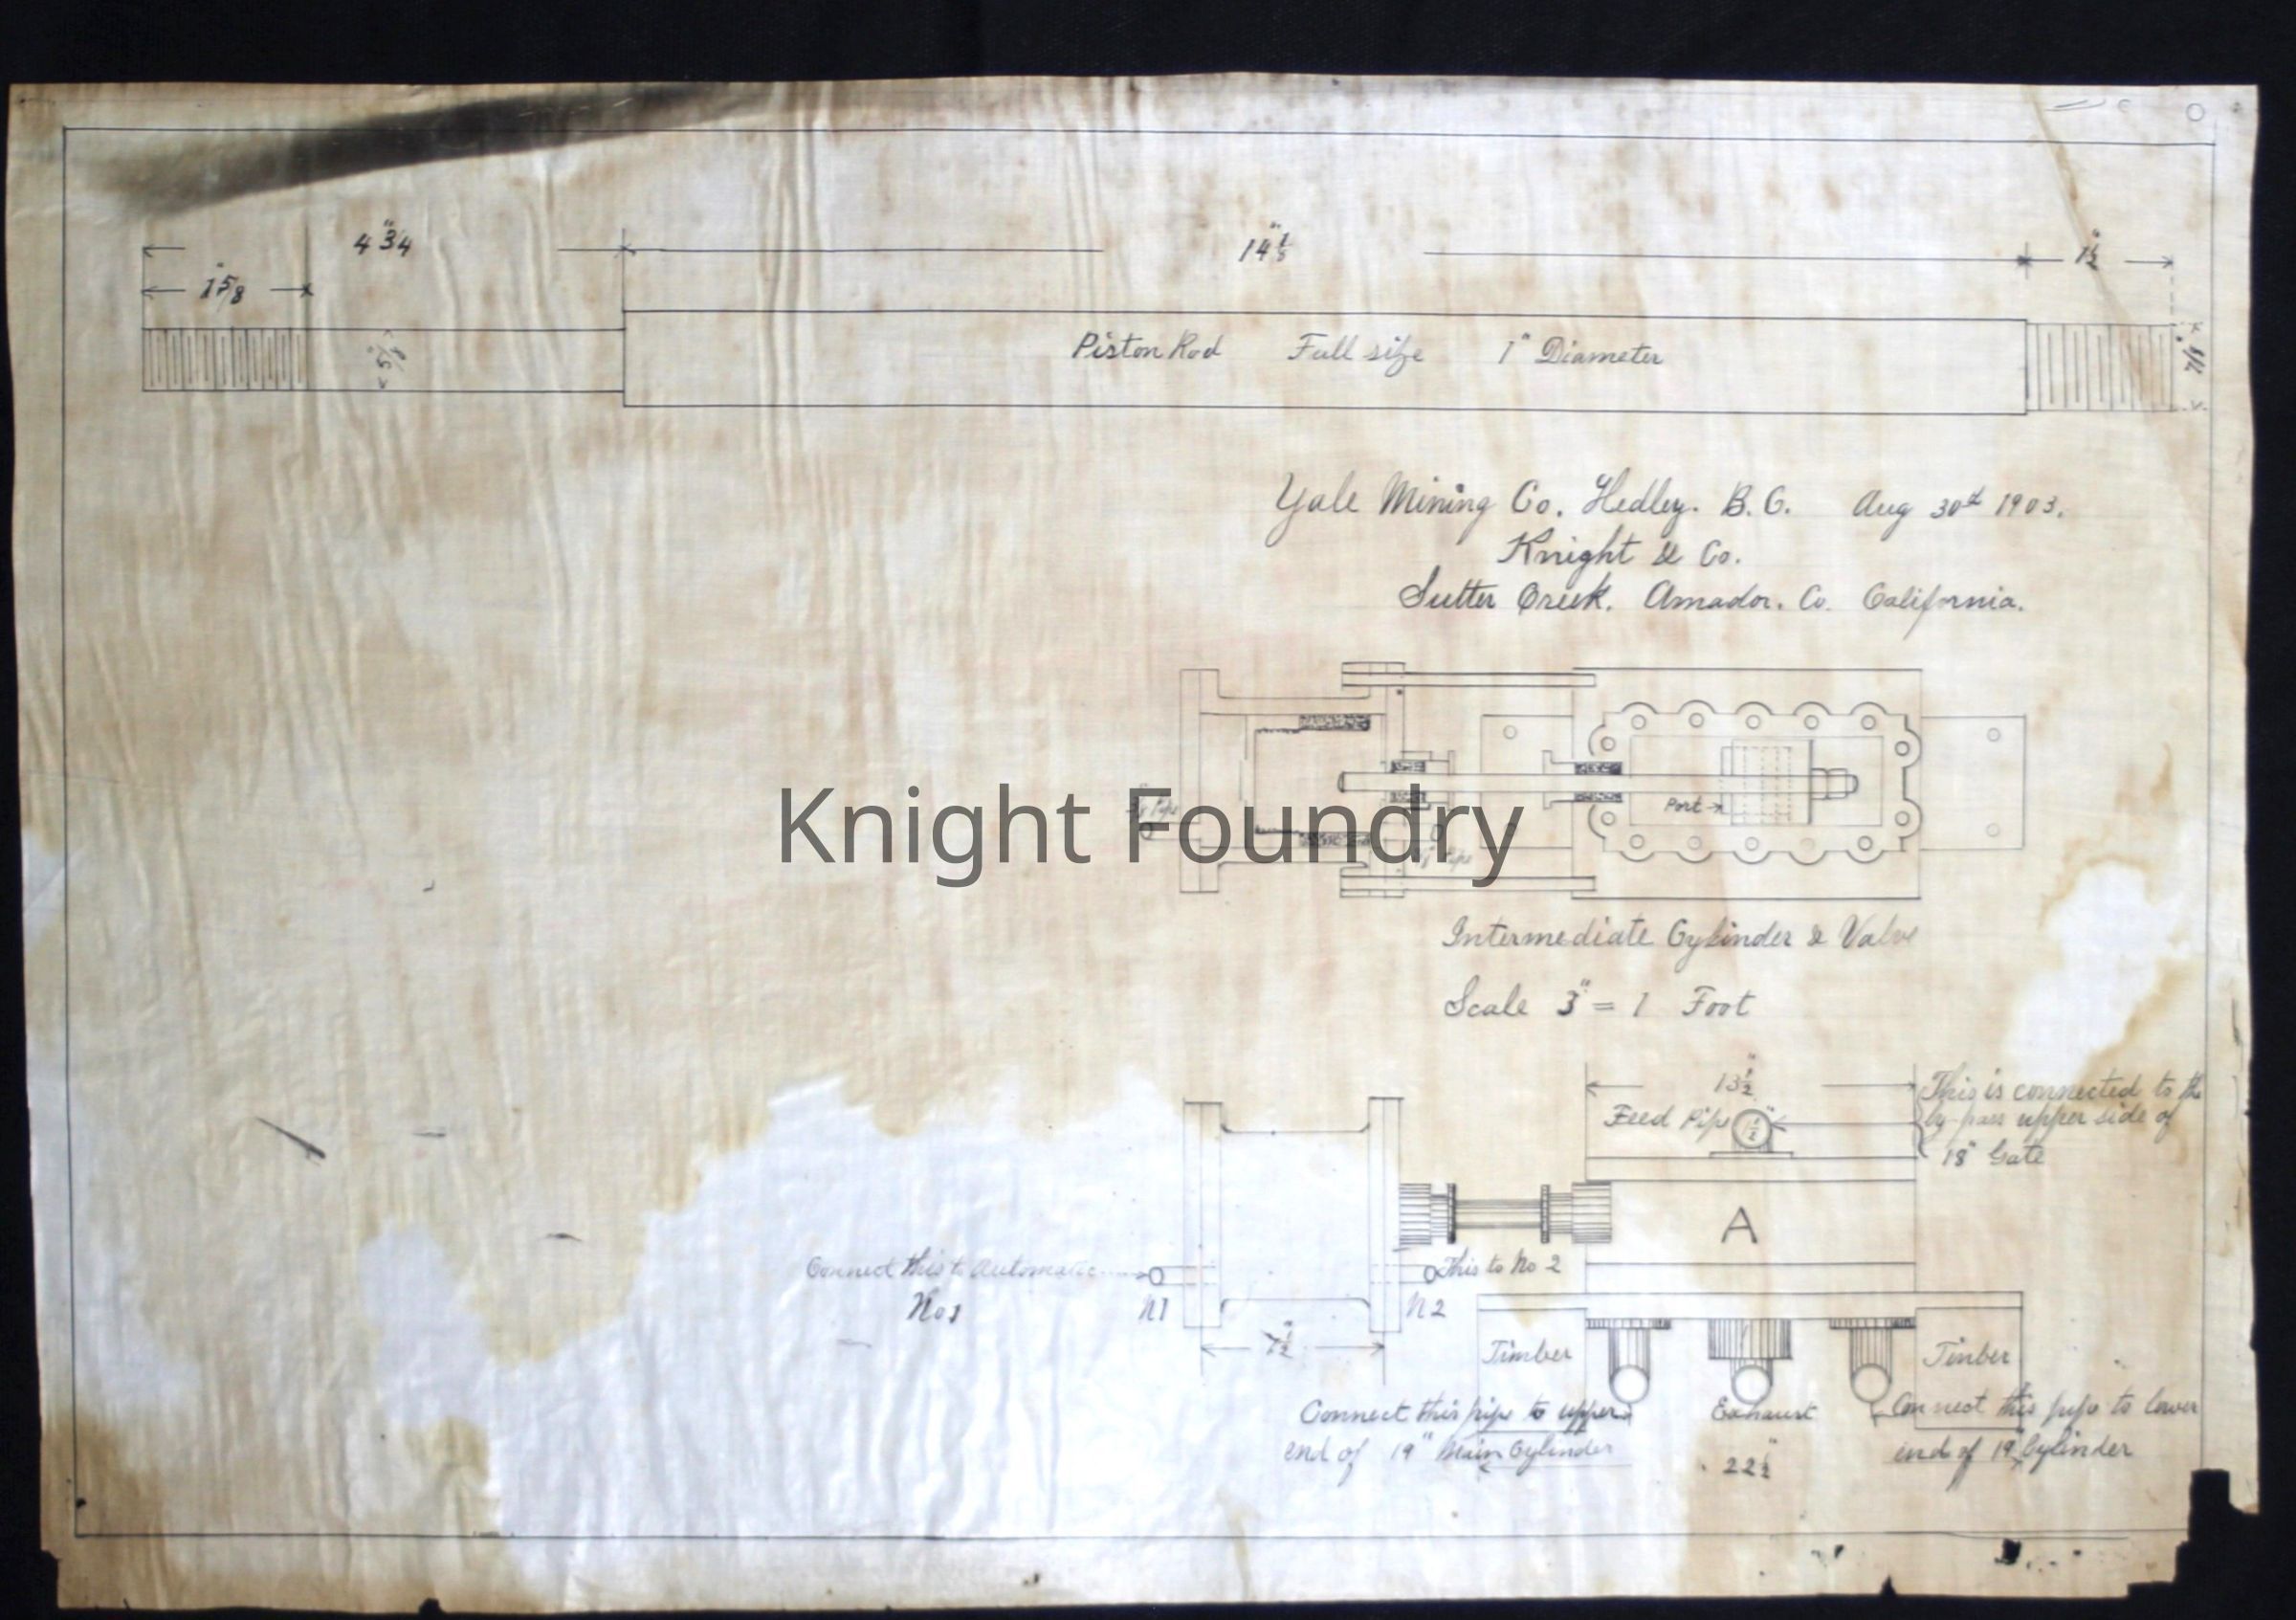 4 3/4"
14 1/
1 1/2"
1 5/8"
5/8"
Piston Rod Full size 1" Diameter
Yale Mining Co. Hedley. B.C. Aug 30th 1903.
Knight & Co.
Sutter Creek. Amador. Co. California.
Pipe
Port
Knight Foundry
Intermediate Cylinder & Valve
Scale 3" = 1 Foot
13 1/2"
Feed Pipe 1 1/2"
This is connected to the
by-pass upper side of
18" Gate
A
Connect this to Automatic
No 1
N1
This to No 2
N2
7 1/2"
Timber
Timber
Connect this pipe to upper
end of 19" Main Cylinder
Exhaust
22 1/2"
Connect this pipe to lower
end of 19" Cylinder